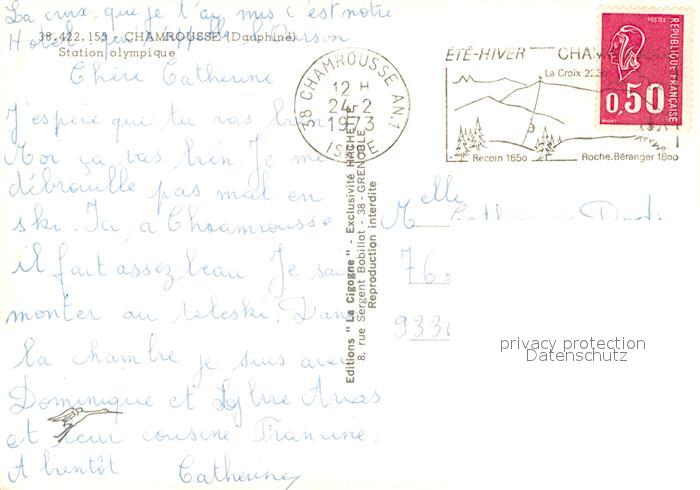 La croix que je t'ai mis c'est notre
Hotel
38.422.155 CHAMROUSSE (Dauphiné)
Station olympique
Chère Catherine
J'espère que tu vas bien
Moi ça vas bien. Je me
débrouille pas mal en
ski. Ici à Chramrousse
il fait assez beau Je sais
monter au teleski. Dans
la chambre je suis avec
Dominique et
et leur cousine Francine.
A bientôt Catherine
38 CHAMROUSSE AN.1
12 H
24-2
1973
ISERE
ÉTÉ-HIVER CHAM
La Croix
Recoin 1650
Roche.Béranger 1800
POSTES
RÉPUBLIQUE FRANÇAISE
0,50
Editions " La Cigogne " - Exclusivité HACHETTE
8, rue Sergent Bobillot - 38 - GRENOBLE
Reproduction interdite
Melle
76
933
privacy protection
Datenschutz